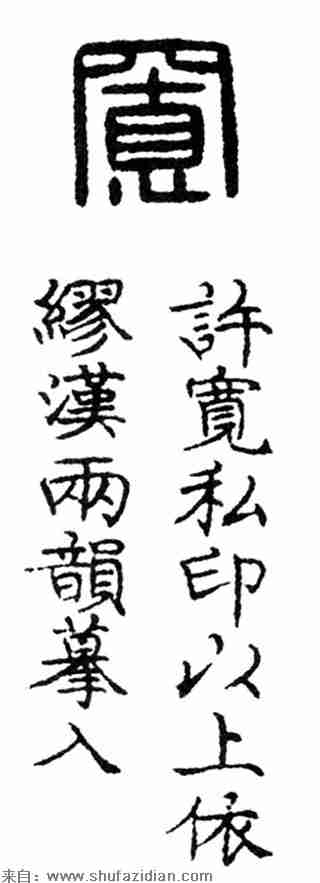 許寬私印以上依
繆漢兩韻摹入
来自：www.shufazidian.com